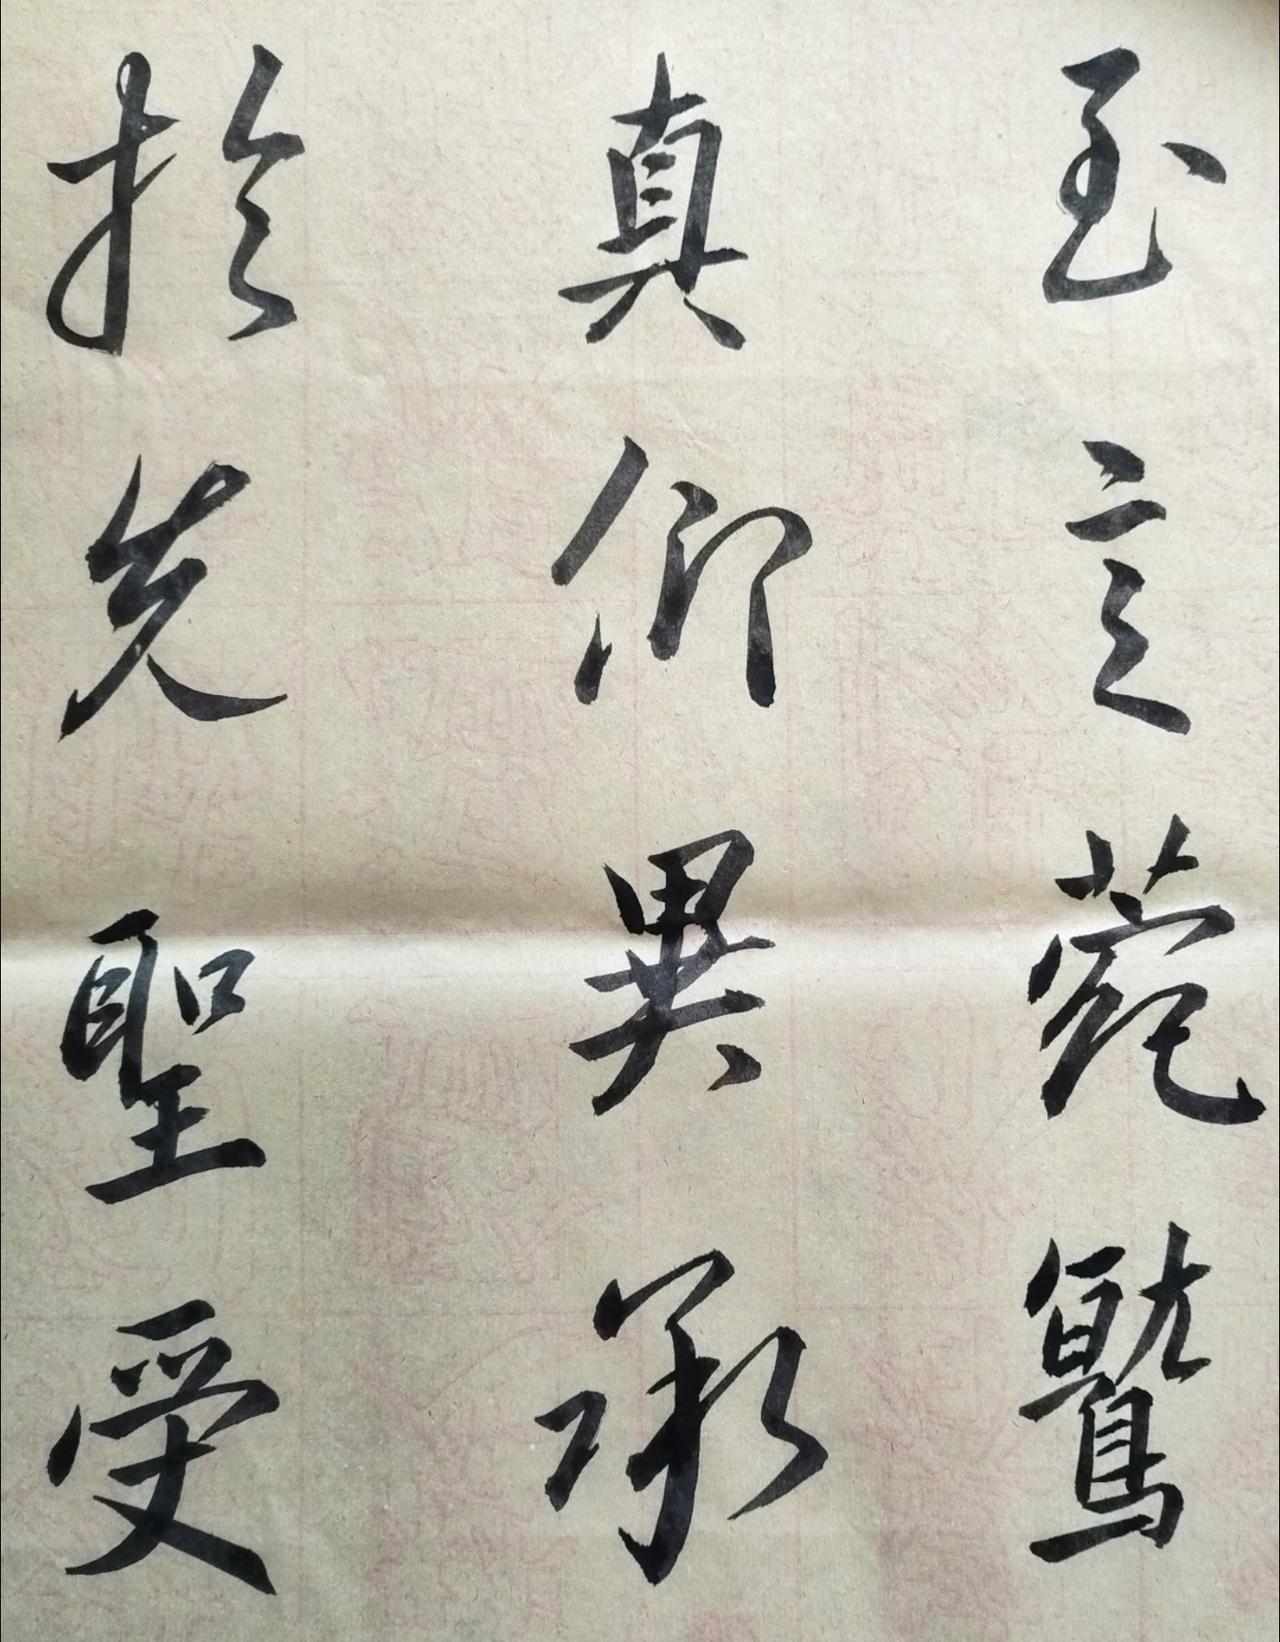 至言菀鷲
真仰異承
於先聖受